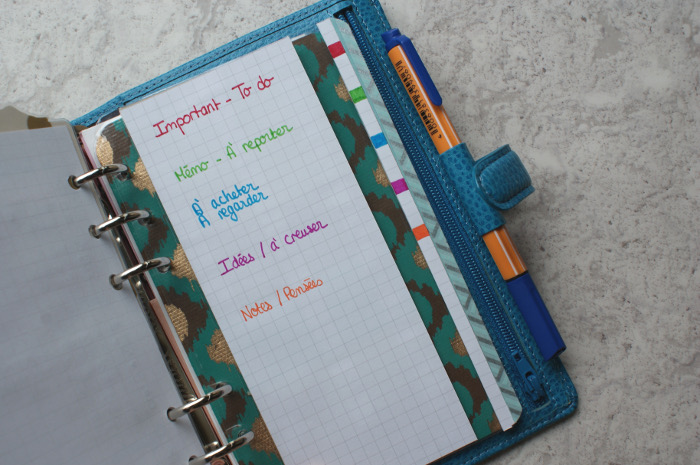 Important - To do
Mémo - À reporter
À acheter
À regarder
Idées / à creuser
Notes / Pensées